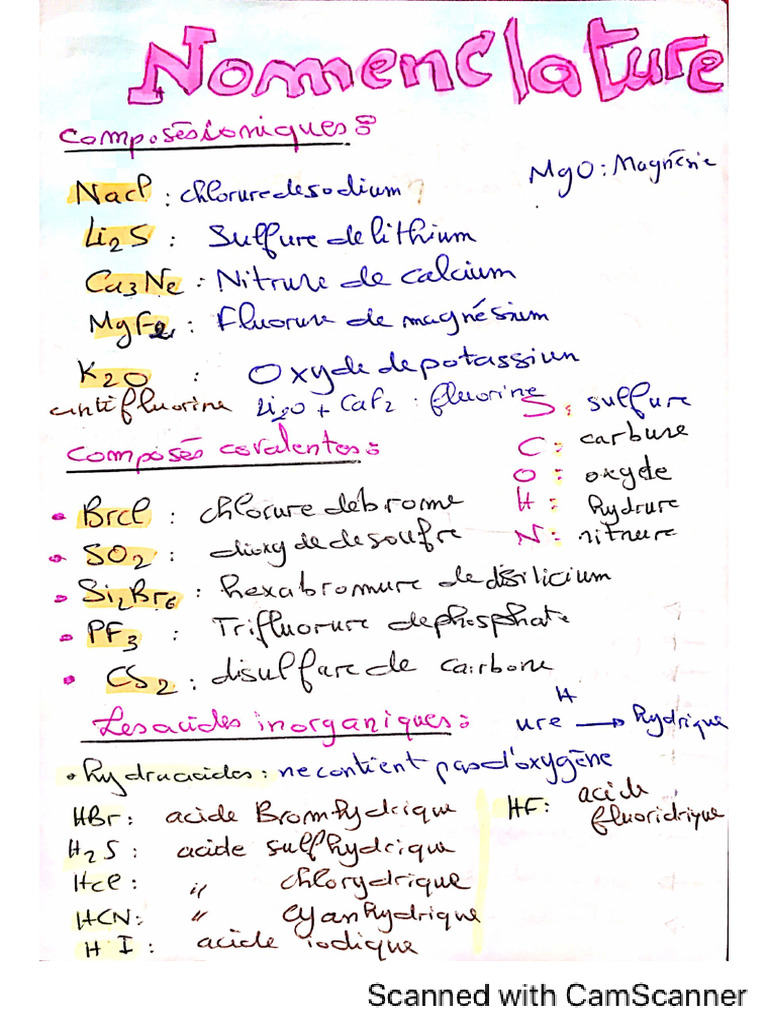 Nomenclature
Composés ioniques :
MgO : Magnésie
NaCl : chlorure de sodium ?
Li2S : Sulfure de lithium
Ca3Ne : Nitrure de calcium
MgF2 : Fluorure de magnésium
K2O : Oxyde de potassium
antifluorine Li2O + CaF2 : fluorine
S : sulfure
C : carbure
O : oxyde
H : hydrure
N : nitrure
Composés covalentes :
BrCl : chlorure de brome
SO2 : dioxyde de soufre
Si2Br6 : hexabromure de disilicium
PF3 : Trifluorure de phosphate
CS2 : disulfure de carbone
Les acides inorganiques :
H
ure → hydrique
hydracides : ne contient pas d'oxygène
HBr : acide Bromhydrique
HF : acide
fluoridrique
H2S : acide sulfhydrique
HCl : " chlorydrique
HCN : " cyanhydrique
HI : acide iodique
Scanned with CamScanner